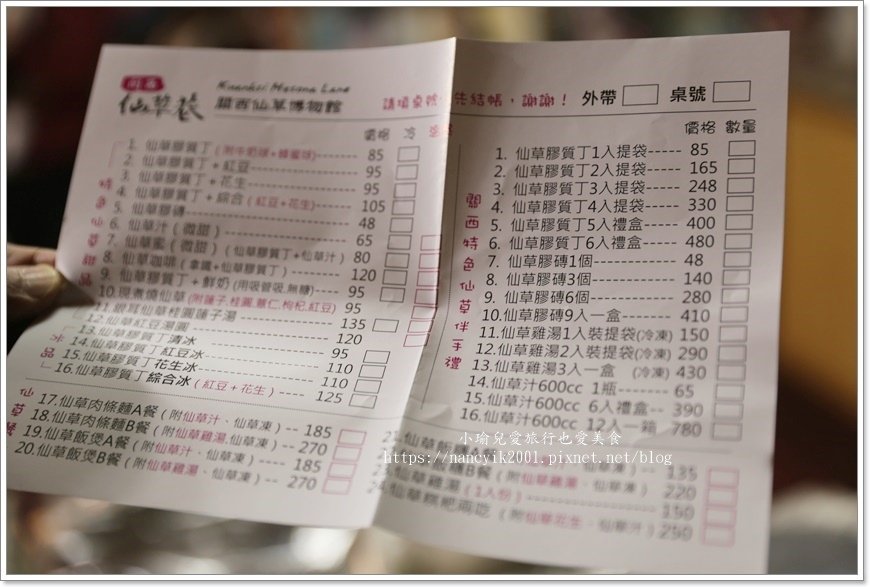 關西
仙草巷
關西仙草博物館
請填桌號,先結帳,謝謝! 外帶 桌號
價格 冷
特色仙草甜品
1. 仙草膠質丁 (附牛奶球+蜂蜜球)------- 85
2. 仙草膠質丁 + 紅豆 95
3. 仙草膠質丁 + 花生 95
4. 仙草膠質丁 + 綜合 (紅豆+花生)----- 105
5. 仙草膠磚 48
6. 仙草汁 (微甜) 65
7. 仙草蜜 (微甜) (仙草膠質丁+仙草汁) 80
8. 仙草咖啡 (拿鐵+仙草膠質丁) 120
9. 仙草膠質丁 + 鮮奶 (用吸管吸,無糖)--- 95
10.現煮燒仙草 (附蓮子,桂圓,薏仁,枸杞,紅豆) 95
11.銀耳仙草桂圓蓮子湯 135
12.仙草紅豆湯圓 120
冰品
13.仙草膠質丁清冰 95
14.仙草膠質丁紅豆冰 110
15.仙草膠質丁花生冰 110
16.仙草膠質丁綜合冰 (紅豆+花生) 125
17.仙草肉條麵A餐 (附仙草汁、仙草凍) -- 185
18.仙草肉條麵B餐 (附仙草雞湯,仙草凍) - 270
19.仙草飯煲A餐 (附仙草汁、仙草凍) ---- 185
20.仙草飯煲B餐 (附仙草雞湯、仙草凍) -- 270
價格 數量
關西特色仙草伴手禮
1. 仙草膠質丁1入提袋----- 85
2. 仙草膠質丁2入提袋----- 165
3. 仙草膠質丁3入提袋----- 248
4. 仙草膠質丁4入提袋----- 330
5. 仙草膠質丁5入禮盒----- 400
6. 仙草膠質丁6入禮盒----- 480
7. 仙草膠磚1個 48
8. 仙草膠磚3個 140
9. 仙草膠磚6個 280
10.仙草膠磚9入一盒 410
11.仙草雞湯1入裝提袋(冷凍) 150
12.仙草雞湯2入裝提袋(冷凍) 290
13.仙草雞湯3入一盒 (冷凍) 430
14.仙草汁600cc 1瓶 65
15.仙草汁600cc 6入禮盒-- 390
16.仙草汁600cc 12入一箱 780
小瑜兒愛旅行也愛美食
https://nancyik2001.pixnet.net/blog
135
仙草飯煲B餐 (附仙草雞湯、仙草凍) 220
仙草雞湯 (1人份) 150
24.仙草粿粑兩吃 (附仙草花生、仙草汁) 250